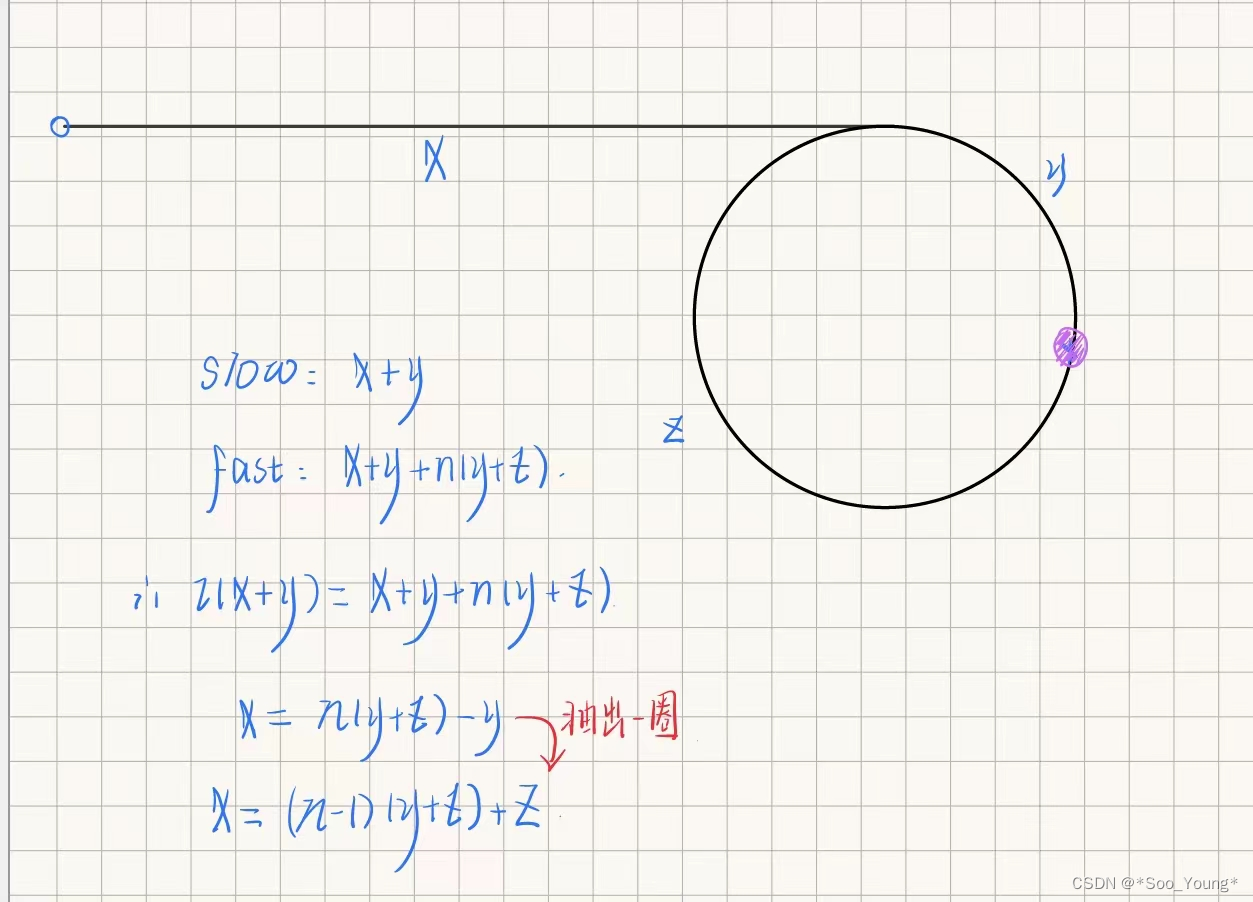 X
y
z
slow: x+y
fast: x+y+n(y+z).
∴ 2(x+y)=x+y+n(y+z)
x= n(y+z)-y 抽出一圈
x= (n-1)(y+z)+z
CSDN @*Soo_Young*